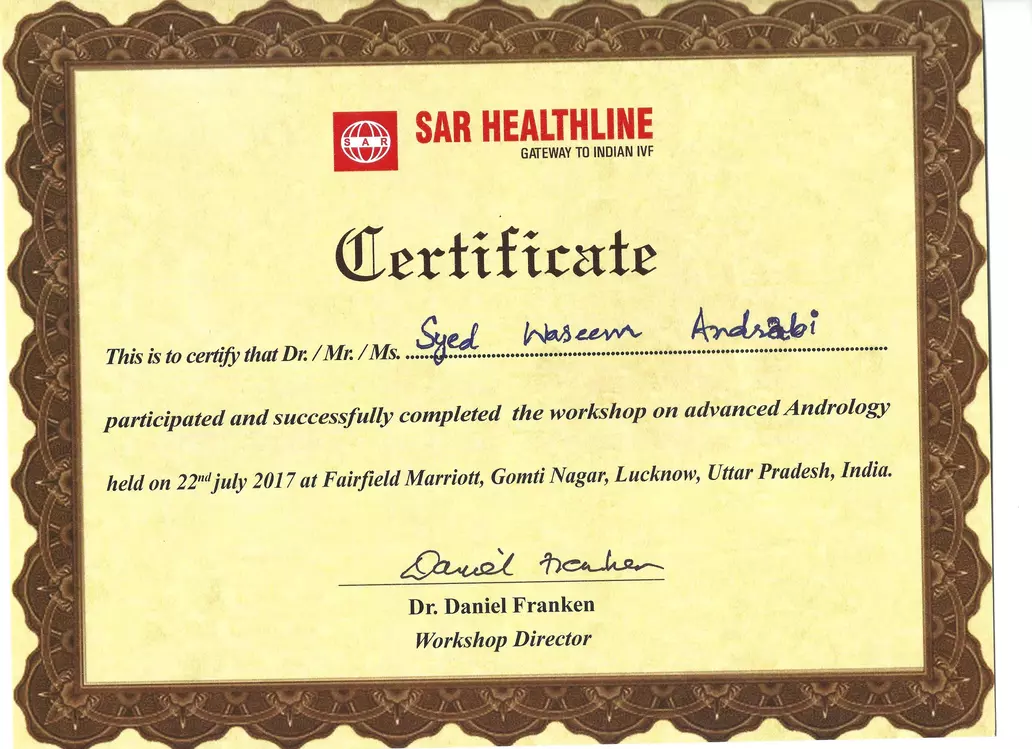 SAR
SAR HEALTHLINE
GATEWAY TO INDIAN IVF
Certificate
This is to certify that Dr. / Mr. / Ms. Syed Waseem Andrabi
participated and successfully completed the workshop on advanced Andrology
held on 22nd july 2017 at Fairfield Marriott, Gomti Nagar, Lucknow, Uttar Pradesh, India.
Daniel Franken
Dr. Daniel Franken
Workshop Director